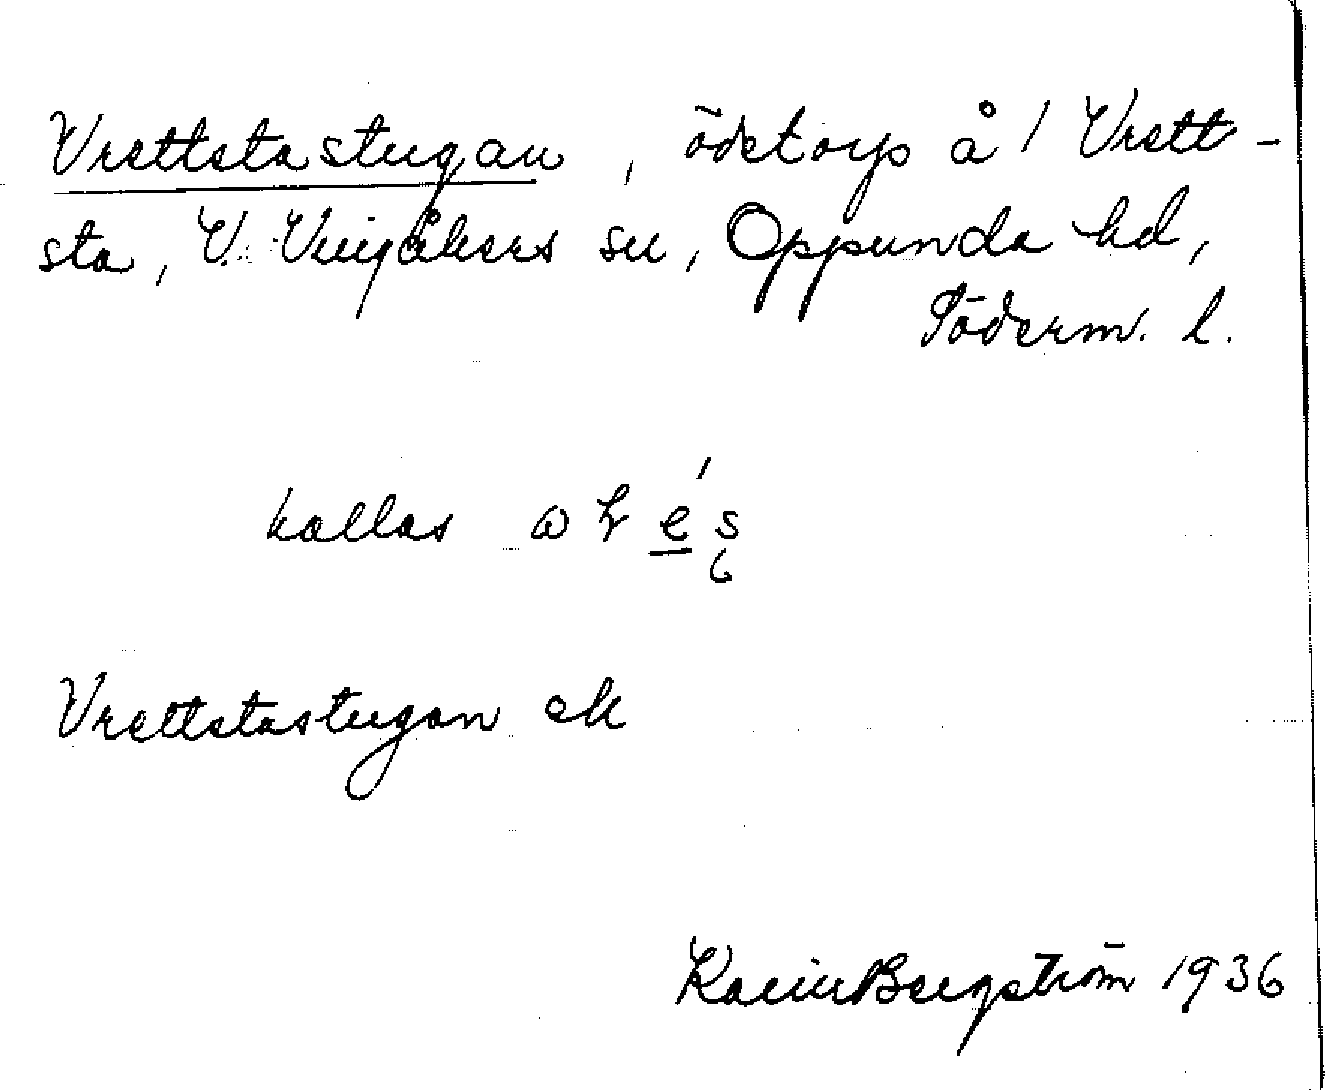 Vrettstastugan, ödetorp å 1 Vrett-
sta, V. Vingåkers sn, Oppunda hd,
Söderm. l.
kallas
Vrettstastugan ek
Karin Bergström 1936